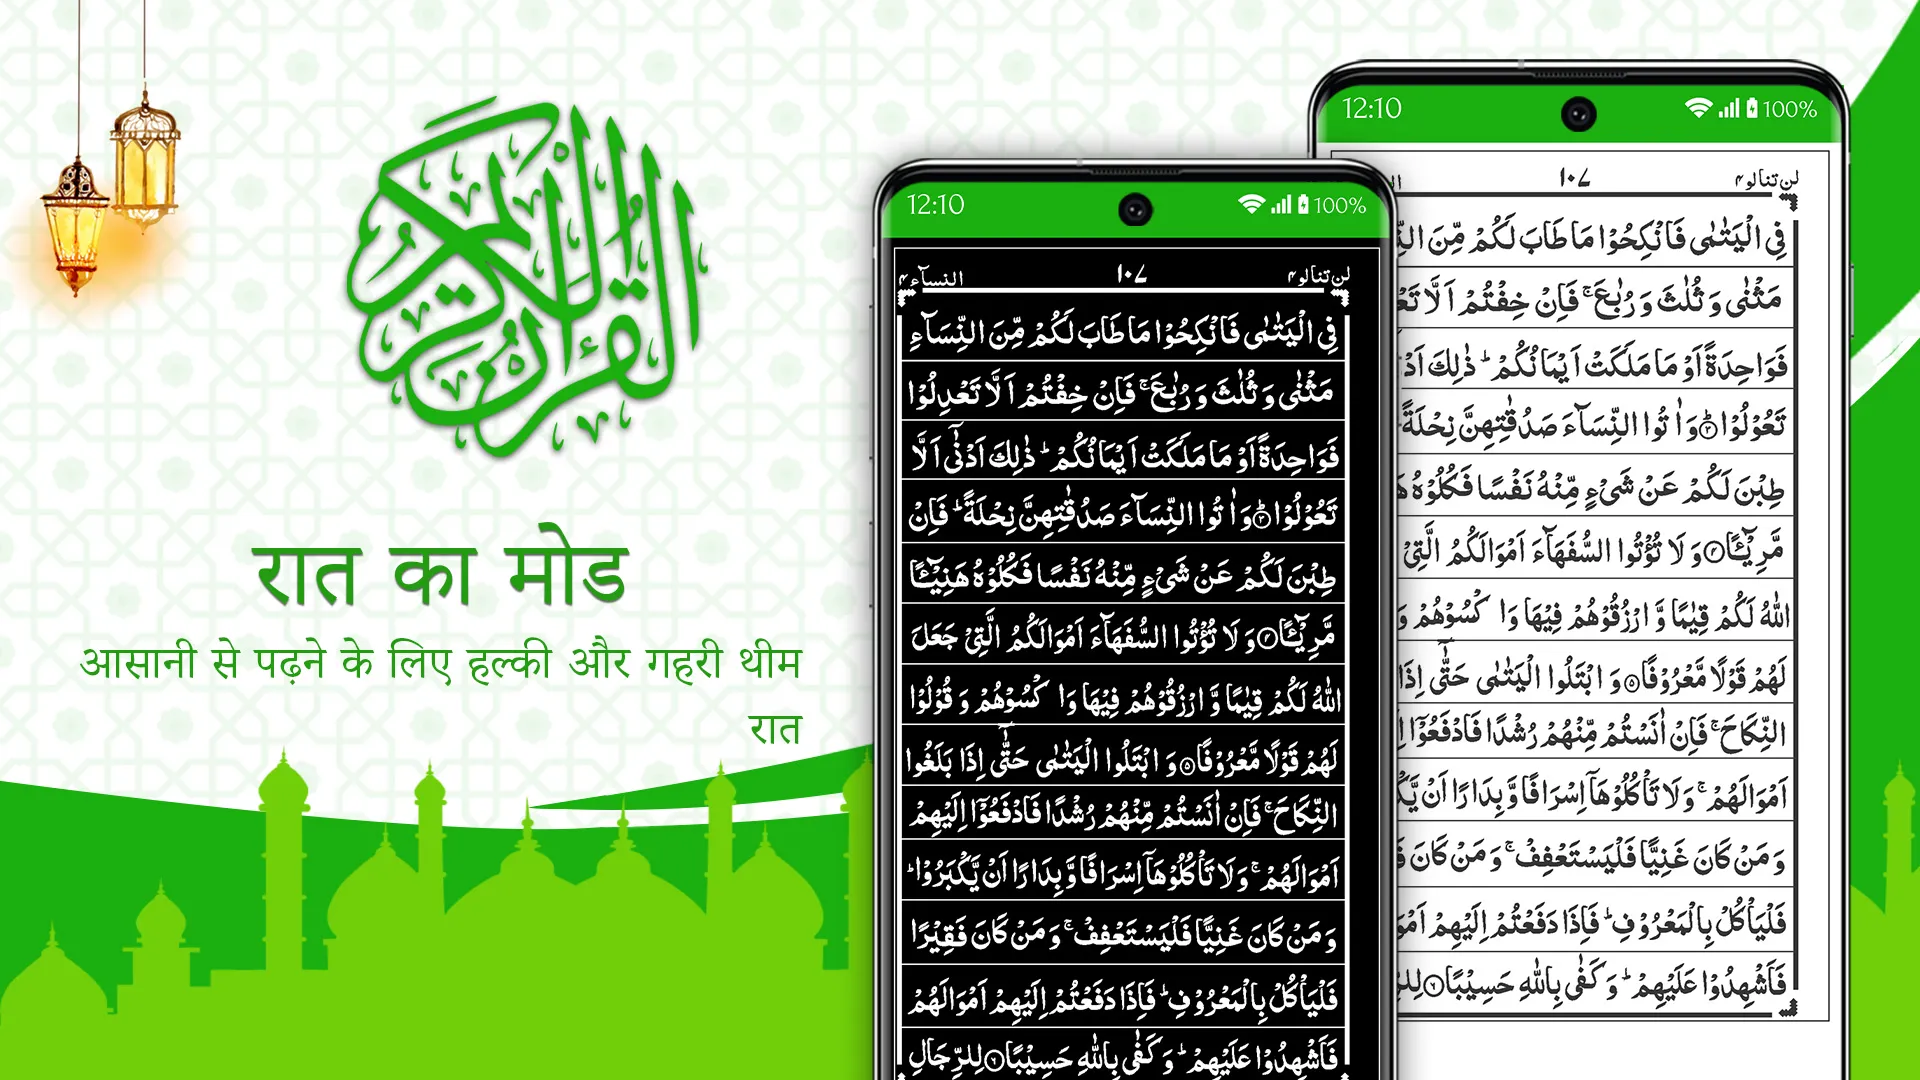 القرآن الكريم
रात का मोड
आसानी से पढ़ने के लिए हल्की और गहरी थीम
रात
12:10 100%
النسآء ۴ ۱۰۷ لن تنالو ۴
فِی الْیَتٰمٰی فَانْكِحُوْا مَا طَابَ لَكُمْ مِّنَ النِّسَآءِ
مَثْنٰی وَ ثُلٰثَ وَ رُبٰعَ ۚ فَاِنْ خِفْتُمْ اَلَّا تَعْدِلُوْا
فَوَاحِدَةً اَوْ مَا مَلَكَتْ اَیْمَانُكُمْ ؕ ذٰلِكَ اَدْنٰۤی اَلَّا
تَعُوْلُوْا ؕ۳ وَ اٰتُوا النِّسَآءَ صَدُقٰتِهِنَّ نِحْلَةً ؕ فَاِنْ
طِبْنَ لَكُمْ عَنْ شَیْءٍ مِّنْهُ نَفْسًا فَكُلُوْهُ هَنِیْٓــًٔا
مَّرِیْٓــًٔا ۴ وَ لَا تُؤْتُوا السُّفَهَآءَ اَمْوَالَكُمُ الَّتِیْ جَعَلَ
اللّٰهُ لَكُمْ قِیٰمًا وَّ ارْزُقُوْهُمْ فِیْهَا وَ اكْسُوْهُمْ وَ قُوْلُوْا
لَهُمْ قَوْلًا مَّعْرُوْفًا ۵ وَ ابْتَلُوا الْیَتٰمٰی حَتّٰۤی اِذَا بَلَغُوا
النِّكَاحَ ۚ فَاِنْ اٰنَسْتُمْ مِّنْهُمْ رُشْدًا فَادْفَعُوْۤا اِلَیْهِمْ
اَمْوَالَهُمْ ۚ وَ لَا تَاْكُلُوْهَاۤ اِسْرَافًا وَّ بِدَارًا اَنْ یَّكْبَرُوْا ؕ
وَ مَنْ كَانَ غَنِیًّا فَلْیَسْتَعْفِفْ ۚ وَ مَنْ كَانَ فَقِیْرًا
فَلْیَاْكُلْ بِالْمَعْرُوْفِ ؕ فَاِذَا دَفَعْتُمْ اِلَیْهِمْ اَمْوَالَهُمْ
فَاَشْهِدُوْا عَلَیْهِمْ ؕ وَ كَفٰی بِاللّٰهِ حَسِیْبًا ۶ لِلرِّجَالِ
12:10 100%
۱۰۷ لن تنالو ۴
فِی الْیَتٰمٰی فَانْكِحُوْا مَا طَابَ لَكُمْ مِّنَ
مَثْنٰی وَ ثُلٰثَ وَ رُبٰعَ ۚ فَاِنْ خِفْتُمْ اَلَّا
فَوَاحِدَةً اَوْ مَا مَلَكَتْ اَیْمَانُكُمْ ؕ ذٰلِكَ
تَعُوْلُوْا ؕ۳ وَ اٰتُوا النِّسَآءَ صَدُقٰتِهِنَّ نِحْلَةً
طِبْنَ لَكُمْ عَنْ شَیْءٍ مِّنْهُ نَفْسًا فَكُلُوْهُ
مَّرِیْٓــًٔا ۴ وَ لَا تُؤْتُوا السُّفَهَآءَ اَمْوَالَكُمُ الَّتِیْ
اللّٰهُ لَكُمْ قِیٰمًا وَّ ارْزُقُوْهُمْ فِیْهَا وَ اكْسُوْهُمْ وَ
لَهُمْ قَوْلًا مَّعْرُوْفًا ۵ وَ ابْتَلُوا الْیَتٰمٰی حَتّٰۤی اِذَا
النِّكَاحَ ۚ فَاِنْ اٰنَسْتُمْ مِّنْهُمْ رُشْدًا فَادْفَعُوْۤا
اَمْوَالَهُمْ ۚ وَ لَا تَاْكُلُوْهَاۤ اِسْرَافًا وَّ بِدَارًا اَنْ
وَ مَنْ كَانَ غَنِیًّا فَلْیَسْتَعْفِفْ ۚ وَ مَنْ كَانَ
فَلْیَاْكُلْ بِالْمَعْرُوْفِ ؕ فَاِذَا دَفَعْتُمْ اِلَیْهِمْ
فَاَشْهِدُوْا عَلَیْهِمْ ؕ وَ كَفٰی بِاللّٰهِ حَسِیْبًا ۶